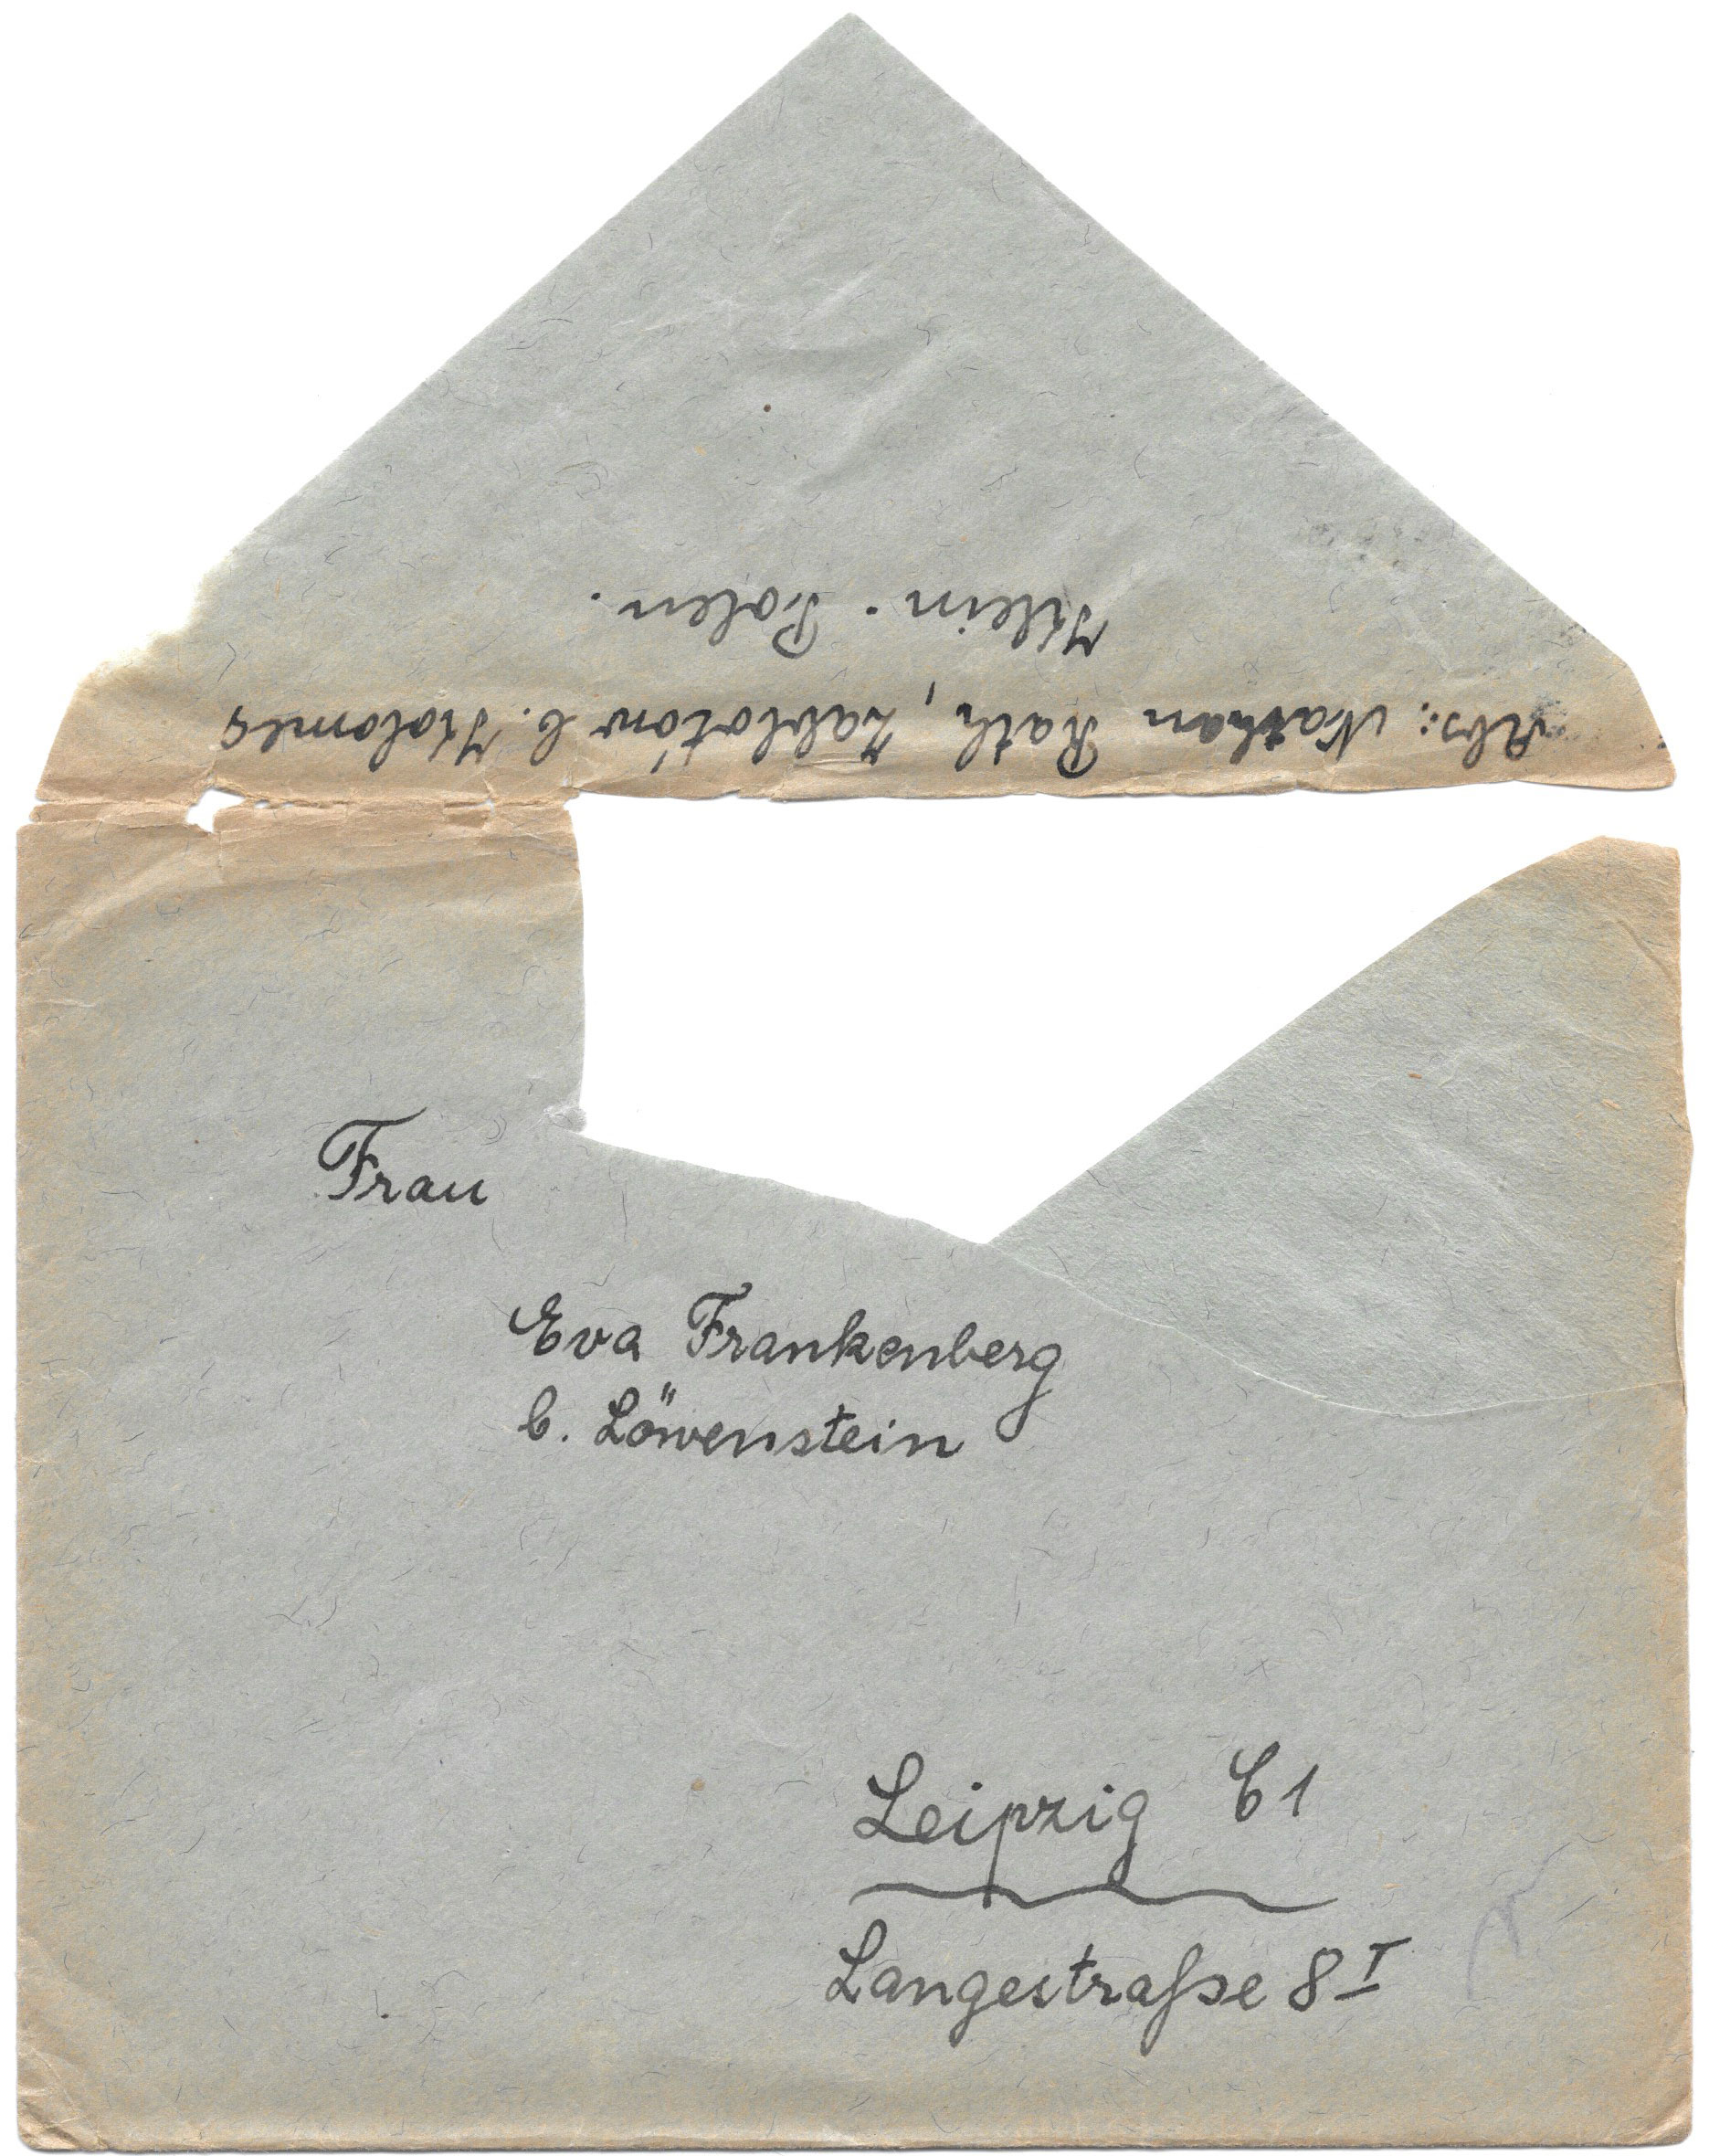 Abs: Nathan Rath, Zablotów b. Kolomea
Klein-Polen.
Frau
Eva Frankenberg
b. Löwenstein
Leipzig C1
Langestraße 8 I